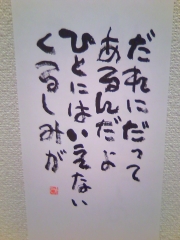 だれにだって
あるんだよ
ひとにはいえない
くるしみが